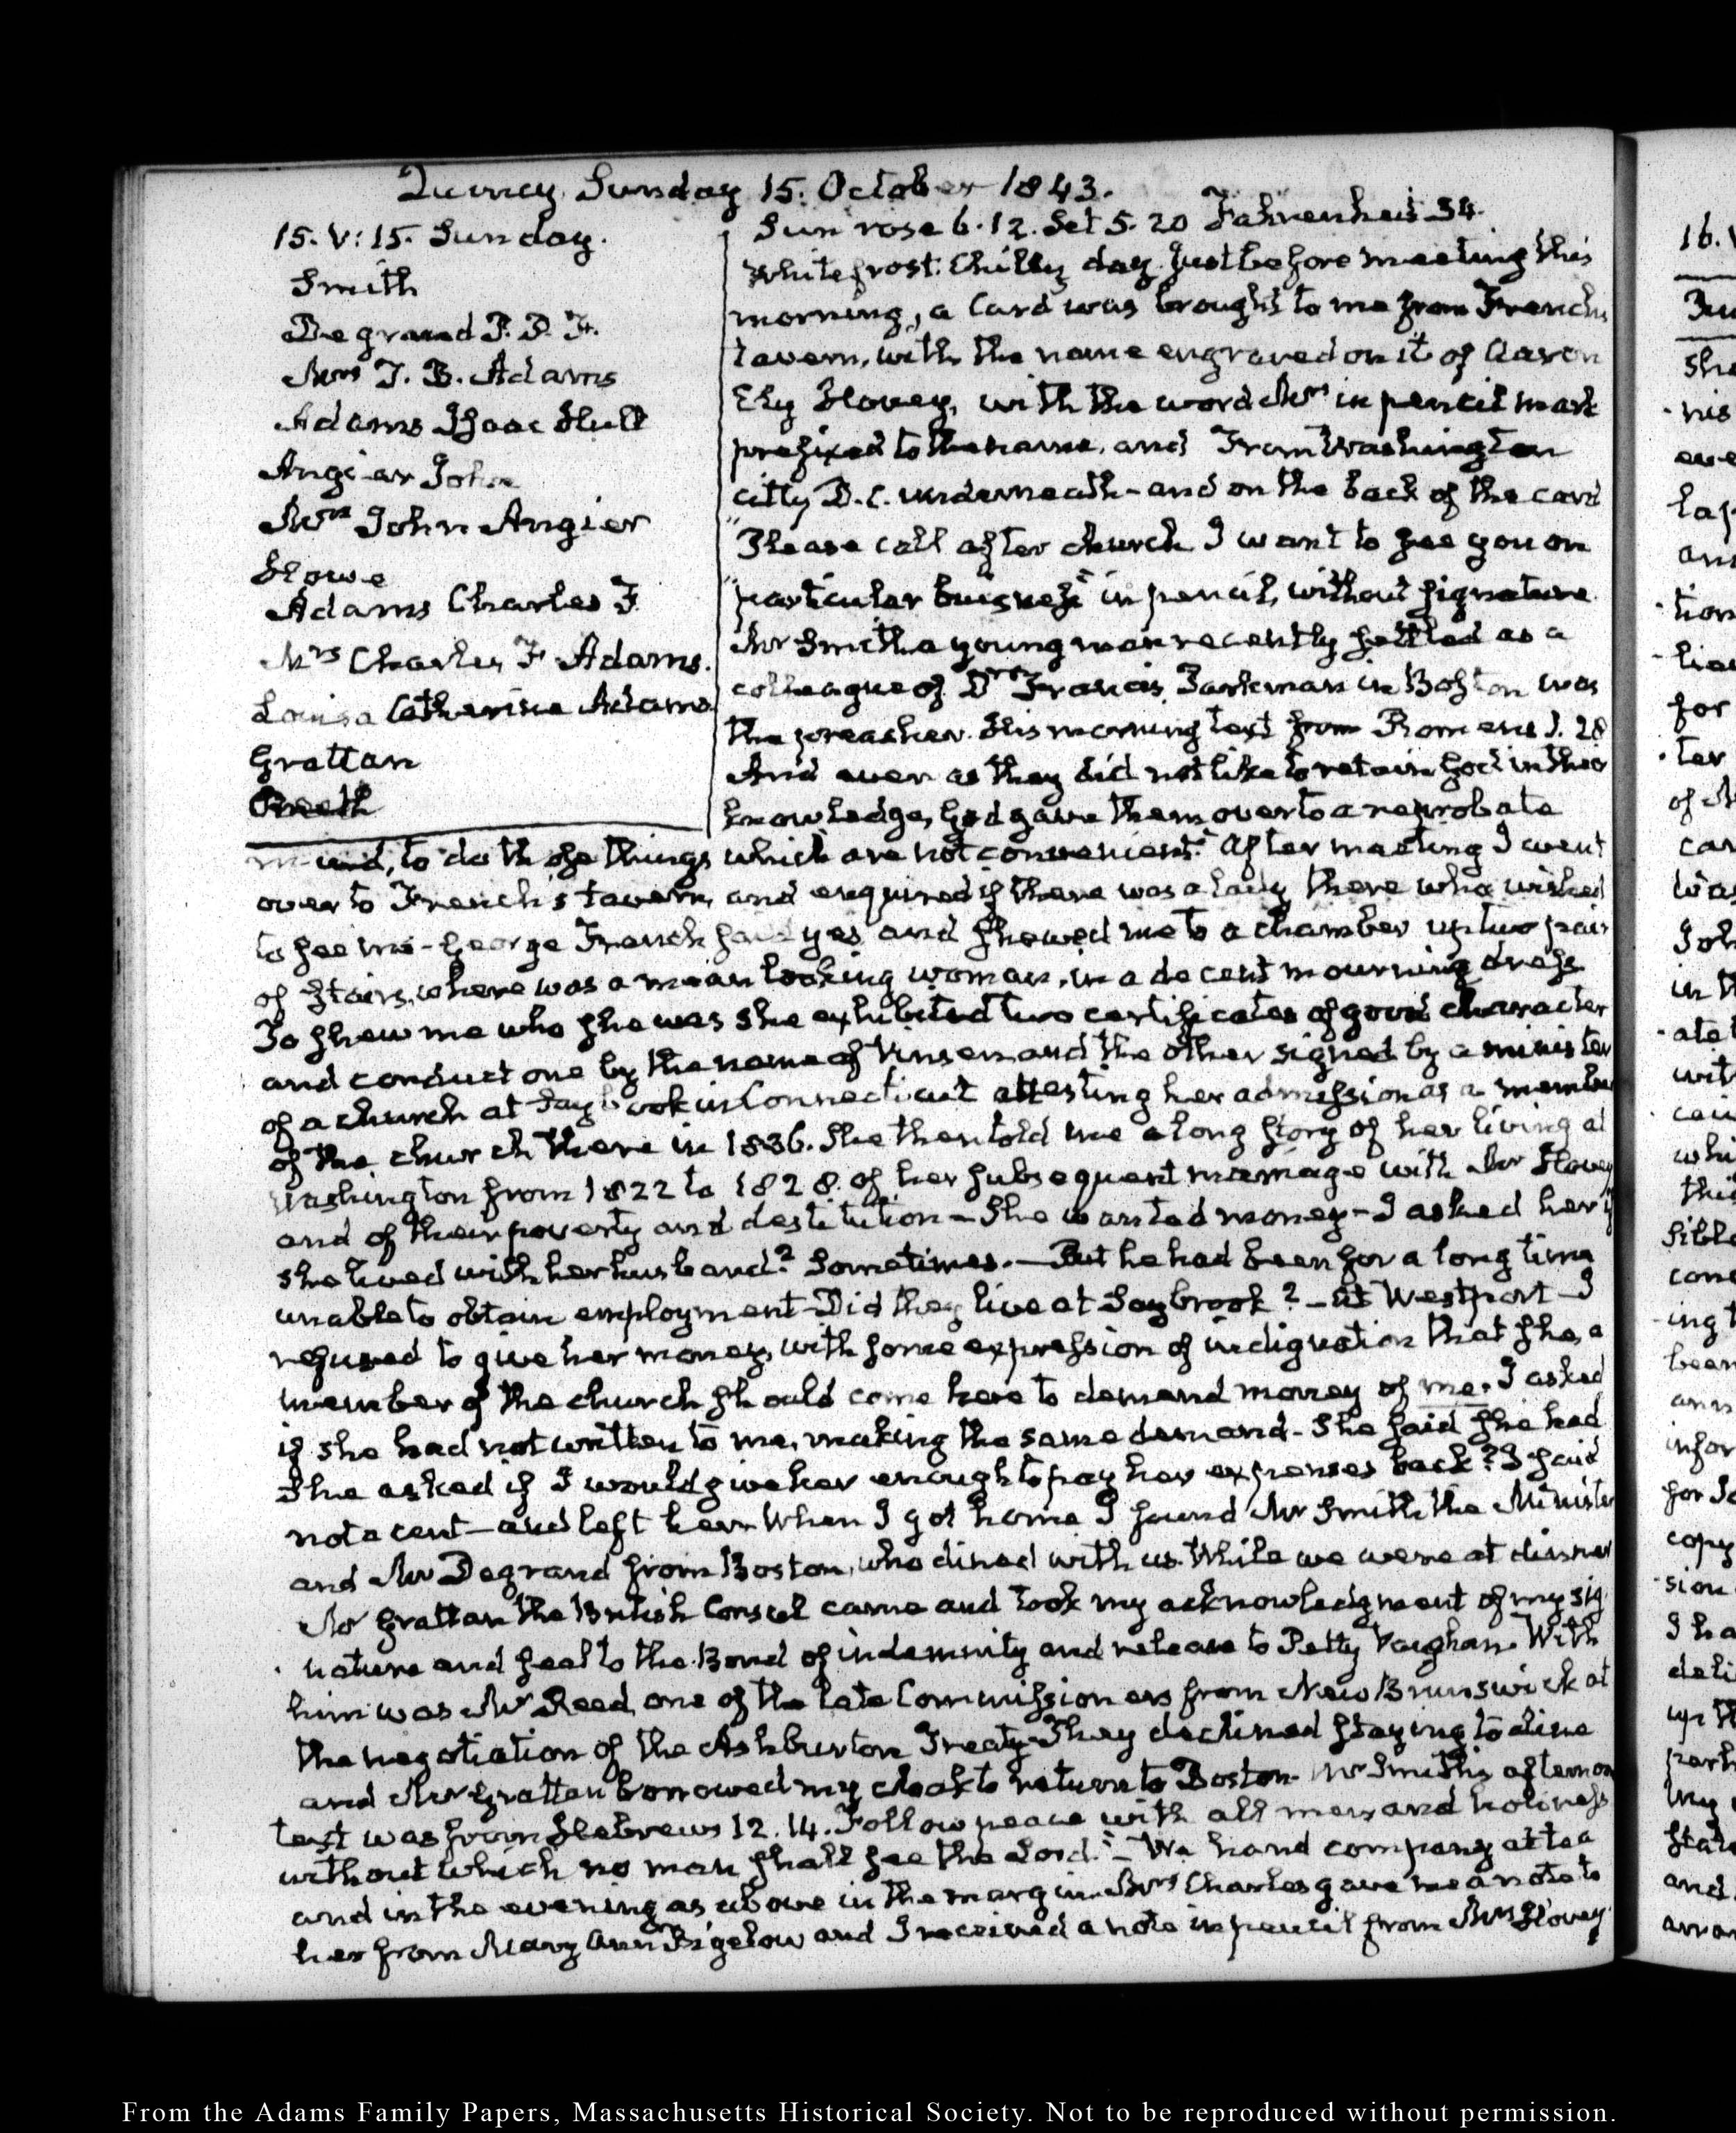 Quincy Sunday 15. October 1843.
15. V:15. Sunday.
Smith
Degrand P. P. F.
Mrs T. B. Adams
Adams Isaac Hull
Angier John
Mrs John Angier
Howe
Adams Charles F
Mrs Charles F Adams.
Louisa Catherine Adams
Grattan
Sun rose 6.12. Set 5.20 Fahrenheit 34.
White frost. Chilly day. Just before meeting this
morning, a Card was brought to me from French's
tavern, with the name engraved on it of Aaron
Ely Hovey, with the word Mrs in pencil mark
prefixed to the name, and From Washington
city D.C. underneath - and on the back of the card
"Please call after church I want to see you on
"particular buisness" in pencil, without signature.
Mr Smith a young man recently settled as a
colleague of Dr Francis Parkman in Boston was
the preacher. His morning text from Romans 1. 28
And even as they did not like to retain God in their
knowledge, God gave them over to a reprobate
mind, to do those things which are not convenient." After meeting I went
over to French's tavern, and enquired if there was a lady there who wished
to see me - George French said yes and shewed me to a chamber up two pair
of stairs, where was a mean looking woman, in a decent mourning dress.
To shew me who she was she exhibited two certificates of good character
and conduct one by the name of Vinson and the other signed by a minister
of a church at Saybrook in Connecticut attesting her admission as a member
of the church there in 1836. She then told me a long story of her living at
Washington from 1822 to 1828. of her subsequent marriage with Mr Hovey
and of their poverty and destitution - She wanted money - I asked her if
she lived with her husband? Sometimes. - But he had been for a long time
unable to obtain employment - Did they live at Saybrook? - At Westport - I
refused to give her money, with some expression of indignation that she, a
member of the church should come here to demand money of me. I asked
if she had not written to me, making the same demand - She said she had
She asked if I would give her enough to pay her expenses back? I said
not a cent - and left her. When I got home I found Mr Smith the Minister
and Mr Degrand from Boston, who dined with us. While we were at dinner
Mr Grattan the British Consul came and took my acknowledgment of my sig-
nature and seal to the Bond of indemnity and release to Petty Vaughan. With
him was Mr Reed, one of the late Commissioners from New Brunswick at
the negotiation of the Ashburton Treaty - They declined staying to dine
and Mr Grattan borrowed my cloak to return to Boston - Mr Smith's afternoon
text was from Hebrews 12.14. Follow peace with all men and holiness
without which no man shall see the Lord." - We hand company at tea
and in the evening as above in the margin. Mrs Charles gave me a note to
her from Mary Ann Bigelow and I received a note in pencil from Mrs Hovey
From the Adams Family Papers, Massachusetts Historical Society. Not to be reproduced without permission.